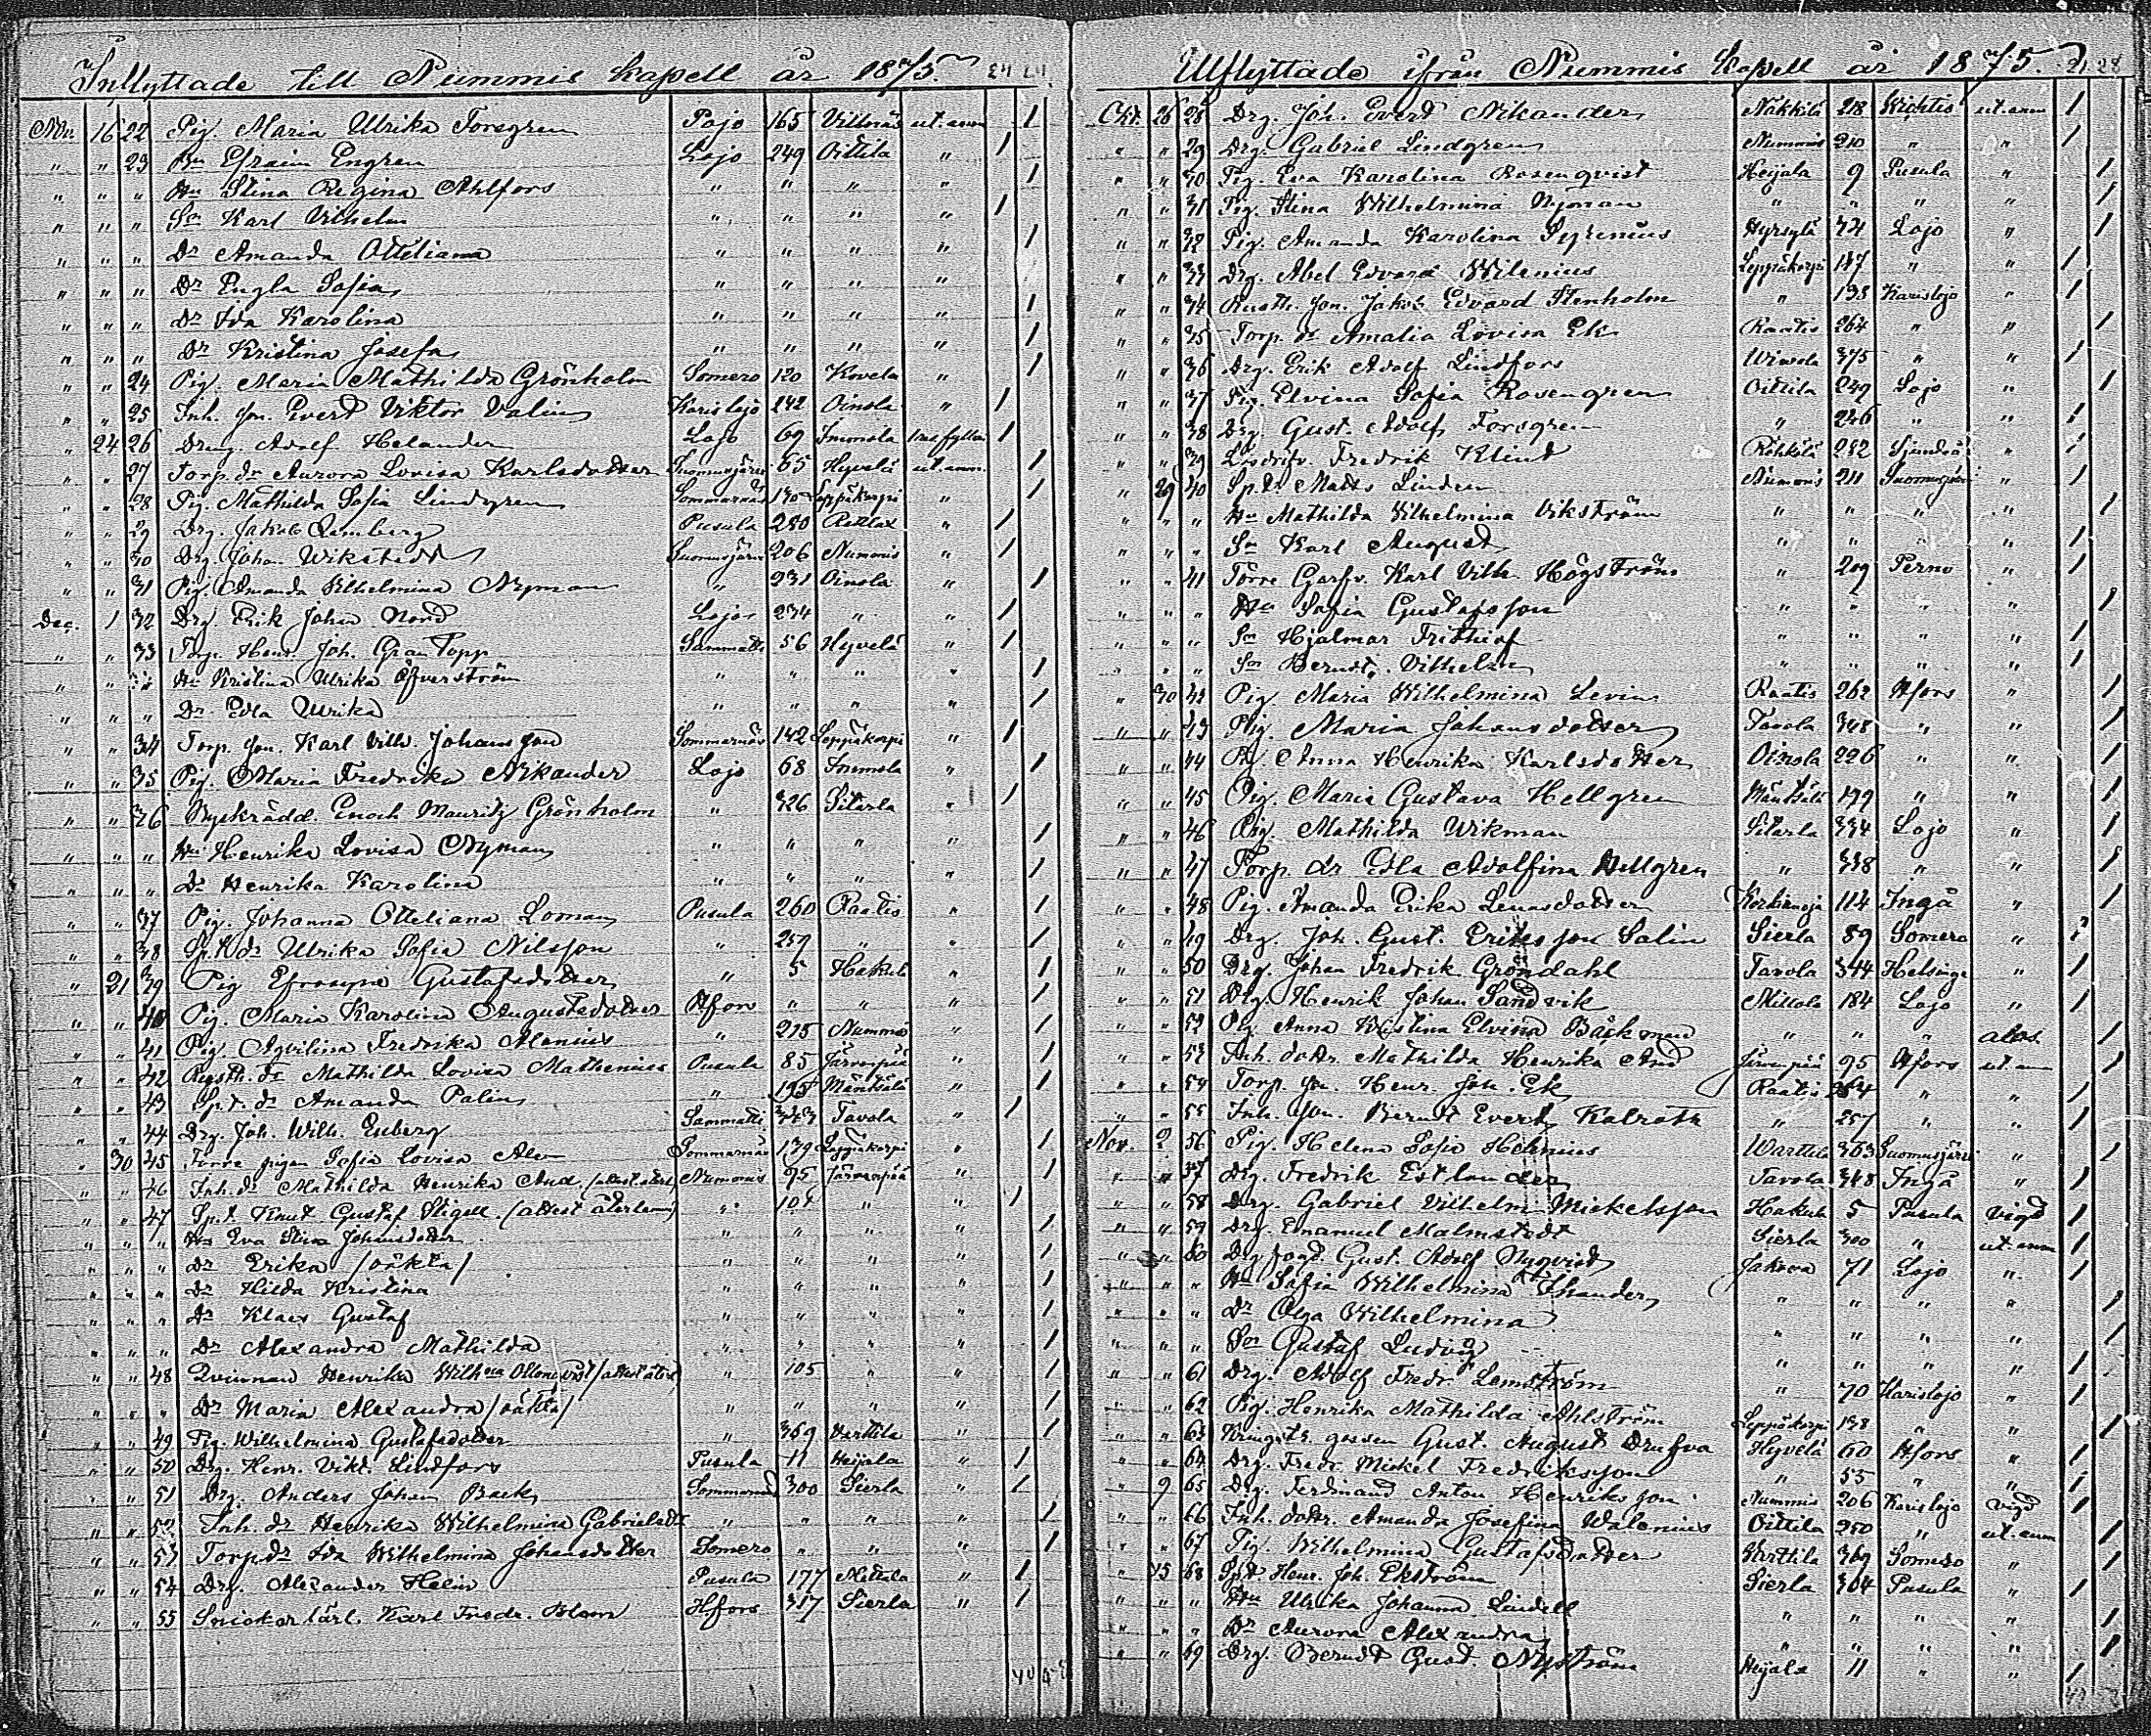 Inflyttade till Nummis kapell år 1875. 24 24
Nov. 16 22 Pig. Maria Ulrika Forsgren Pojo 165 Villnäs ut. anm 1
" " 23 Bn Efraim Engren Lojo 249 Oittila " 1
" " " Hu Stina Regina Ahlfors " " " " 1
" " " Sn Karl Vilhelm " " " " 1
" " " Dr Amanda Otteliana " " " " 1
" " " Dr Engla Sofia " " " "
" " " Dr Ida Karolina " " " " 1
" " " Dr Kristina Josefa " " " " 1
" " 24 Pig. Maria Mathilda Grönholm Somero 120 Kovela " 1
" " 25 Inh. son. Evert Viktor Valin Karislojo 242 Oinola " 1
" 24 26 Dreng. Adolf Helander Lojo 69 Immola 1
" " 27 Torp. dr Aurora Lovisa Karlsdotter Suomusjärvi 65 Hyvelä ut. anm. 1
" " 28 Pig. Mathilda Sofia Lindgren Sommarnäs 130 Leppäkorpi " 1
" " 29 Drg. Jakob Lemberg Pusula 280 " 1
" " 30 Drg. Johan Wikstedt Suomusjärvi 206 Nummis " 1
" " 31 Pig. Amanda Vilhelmina Nyman " 231 Oinola " 1
Dec. 1 32 Drg Erik Johan Nord Lojo 234 " " 1
" " 33 Torp. Henr. Joh. Gran Topp Sammatti 56 Hyvelä " 1
" " " Hu Kristina Ulrika Öfverström " " " " 1
" " " Dr. Edla Ulrika " " " " 1
" " 34 Torp. son. Karl Vilh. Johansson Sommarnäs 142 Leppäkorpi " 1
" " 35 Pig. Maria Fredrika Nikander Lojo 68 Immola " 1
" " 36 Byskrädd. Enoch Mauritz Grönholm " 326 Sitarla " 1
" " " Hu Henrika Lovisa Nyman " " " " 1
" " " Dr Henrika Karolina " " " " 1
" " 37 Pig. Johanna Otteliana Loman Pusula 260 Raatis " 1
" " 38 Sp.t. dr Ulrika Sofia Nilsson " 259 " " 1
" 21 39 Pig Efrosyne Gustafsdotter " 5 Hakula " 1
" " 40 Pig. Maria Karolina Augustsdotter Hfors " " " 1
" " 41 Pig. Aqvilina Fredrika Alenius " 215 Nummis " 1
" " 42 Rusth. dr Mathilda Lovisa Mathenius Pusula 85 Järvenpää " 1
" " 43 Sp.t. dr Amanda Palin " 195 Mäntsälä " 1
" " 44 Drg. Joh. Wilh. Enberg Sammatti 343 Tavola " 1
" 30 45 Torre pigan Sofia Lovisa Alen Sommarnäs 139 Leppäkorpi " 1
" " 46 Inh. dr Mathilda Henrika And. Nummis 95 Järvenpää " 1
" " 47 Sp.t. Knut Gustaf Stigell (attest återtemn) " 101 " " 1
" " " Hu Eva Stina Johansdotter " " " " 1
" " " Dr Erika /oäkta/ " " " " 1
" " " Dr Hilda Kristina " " " " 1
" " " Dr Klaes Gustaf " " " " 1
" " " Dr Alexandra Mathilda " " " " 1
" " 48 Qvinnan Henrika Wilhna " 105 " " 1
" " " Dr Maria Alexandra /oäkta/ " " " " 1
" " 49 Pig. Wilhelmina Gustafsdotter " 369 Varttila " 1
" " 50 Drg. Henr. Vikt. Lindfors Pusula 11 Heijala " 1
" " 51 Drg. Anders Johan Back Sommarnäs 300 Sierla " 1
" " 52 Inh. dr Henrika Wilhelmina Gabrielsdr " " " " 1
" " 53 Torp. dr Ida Wilhelmina Johansdotter Somero " " " 1
" " 54 Drg. Alexander Helin Pusula 177 Millola " 1
" " 55 Snickar lärl. Karl Fredr. Blom Hfors 317 Sierla " 1
Utflyttade ifrån Nummis Kapell år 1875. 21 28
Okt. 26 28 Drg. Joh. Evert Nikander Näkkilä 218 Wichtis ut. anm 1
" " 29 Drg. Gabriel Lindgren Nummis 210 " " 1
" " 30 Pig. Eva Karolina Rosenqvist Heijala 9 Pusula " 1
" " 31 Pig. Stina Wilhelmina Nyman " " " " 1
" " 32 Pig. Amanda Karolina Syrenius Hyrsylä 34 Lojo " 1
" " 33 Drg. Abel Edvard Wilenius Leppäkorpi 147 " " 1
" " 34 Rusth. son. Jakob Edvard Stenholm " 133 Karislojo " 1
" " 35 Torp. dr Amalia Lovisa Ek Raatis 264 " " 1
" " 36 Drg. Erik Adolf Lindfors Wiwola 375 " " 1
" " 37 Pig. Elvina Sofia Rosengren Oittila 249 Lojo " 1
" " 38 Drg. Gust. Adolf Forsgren " 246 " " 1
" " 39 Fredrik Klint Röhkölä 282 Sjundeå " 1
" 29 40 Sp.t. Matts Linden Nummis 211 Suomusjärvi " 1
" " " Hu Mathilda Vilhelmina Vikström " " " " 1
" " " Sn Karl August " " " " 1
" " 41 Torre Garfv. Karl Vilh. Högström " 209 Perno " 1
" " " Hu Sofia Gustafsson " " " " 1
" " " Sn Hjalmar Frithiof " " " " 1
" " " Sn Berndt Vilhelm " " " " 1
" 30 42 Pig. Maria Wilhelmina Levin Raatis 262 Hfors " 1
" " 43 Pig. Maria Johansdotter Tavola 348 " " 1
" " 44 Pig. Anna Henrika Karlsdotter Oinola 226 " " 1
" " 45 Pig. Maria Gustava Hellgren Mäntsälä 199 " " 1
" " 46 Pig. Mathilda Wikman Sitarla 334 Lojo " 1
" " 47 Torp. dr Edla Adolfina Hellgren " 338 " " 1
" " 48 Pig. Amanda Erika Lenasdotter Korkianoja 114 Ingå " 1
" " 49 Drg. Joh. Gust. Eriksson Salin Sierla 89 Somero " 1
" " 50 Drg. Johan Fredrik Gröndahl Tavola 344 Helsinge " 1
" " 51 Drg. Henrik Johan Sandvik Millola 184 Lojo " 1
" " 52 Pig. Anna Kristina Elvina Bäckman " " " aters. 1
" " 53 Inh. dottr. Mathilda Henrika And Järvenpää 95 Hfors ut. anm 1
" " 54 Torp. son. Henr. Joh. Ek Raatis 264 " " 1
" " 55 Inh. son. Berndt Evert Kalroth " 257 " " 1
Nov. 2 56 Pig. Helena Sofia Helenius Warttila 363 Suomusjärvi " 1
" " 57 Drg. Fredrik Estlander Tavola 348 Ingå " 1
" " 58 Drg. Gabriel Vilhelm Mickelsson Hakula 5 Pusula vigd 1
" " 59 Drg. Emanuel Malmstedt Sierla 300 " ut. anm 1
" " 60 Gust. Adolf Nyqvist Jakova 71 Lojo " 1
" " " Hu Sofia Wilhelmina Thander " " " " 1
" " " Dr Olga Wilhelmina " " " " 1
" " " Sn Gustaf Ludvig " " " " 1
" " 61 Drg. Adolf Fredr. Lemström " 70 Karislojo " 1
" " 62 Pig. Henrika Mathilda Ahlström Leppäkorpi 138 " " 1
" " 63 gossen Gust. August Drufva Hyvelä 60 Hfors " 1
" " 64 Drg. Fredr. Mickel Fredriksson " 55 " " 1
" 9 65 Drg. Ferdinand Anton Henriksson Nummis 206 Karislojo vigd 1
" " 66 Inh. dottr. Amanda Josefina Walenius Oittila 250 " ut. anm 1
" " 67 Pig. Wilhelmina Gustafsdotter Varttila 369 Somero " 1
" 15 68 Sp.t. Henr. Joh. Ekström Sierla 304 Pusula " 1
" " " Hu Ulrika Johanna Lindell " " " " 1
" " " Dr Aurora Alexandra " " " " 1
" " 69 Drg. Berndt Gust. Nyström Heijala 11 " " 1